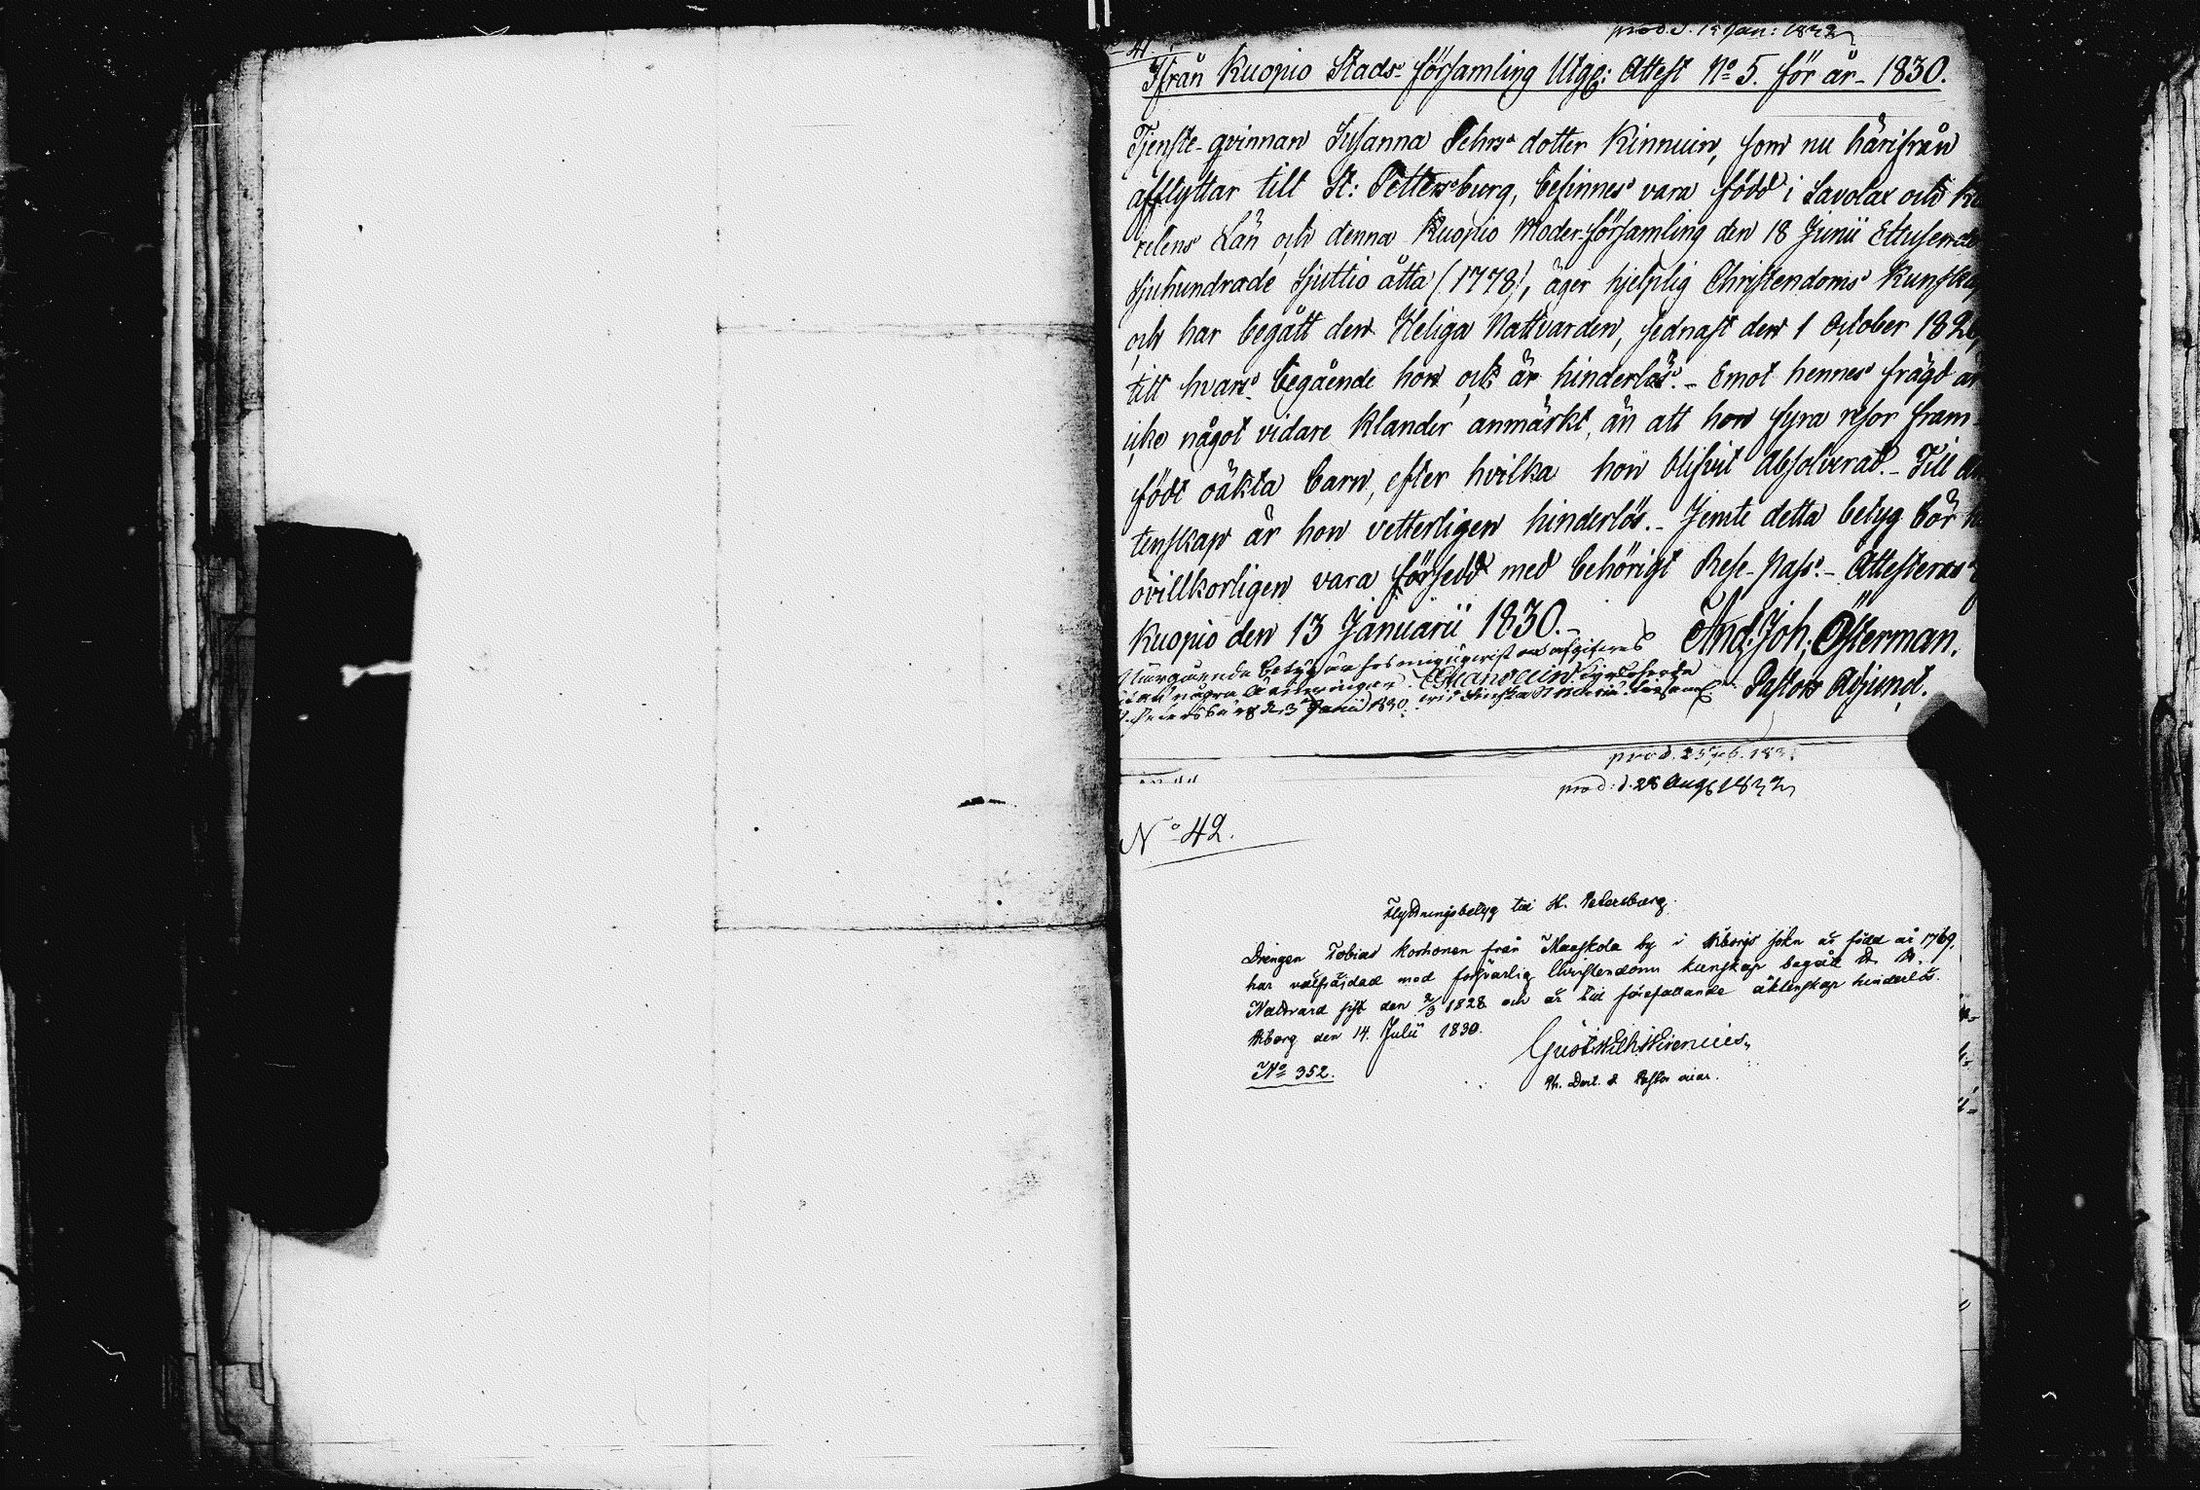 41.
prod. d. 15 Jan: 1832
Ifrån Kuopio Stads-församling Utgg: Attest No 5. för år 1830.
Tjenste-qvinnan Susanna Pehrs dotter Kinnuin, som nu härifrån
afflyttar till St: Pettersburg, befinnes vara född i Savolax och Ka
relens Län och denna Kuopio Moder-församling den 18 Junii Ettusende
sjuhundrade sjuttio åtta (1778), äger hjelplig Christendoms Kunskap
och har begått den Heliga Nattvarden, sednast den 1 October 182
till hvars begående hon ock är hinderlös. - Emot hennes frägd är
icke något vidare klander anmärkt, än att hon fyra resor fram-
födt oäkta barn, efter hvilka hon blifvit Absolverad. - Till äk
tenskap är hon vetterligen hinderlös. - Jemte detta betyg bör h
ovillkorligen vara försedd med behörigt Rese-Pass. - Attesteras
Kuopio den 13 Januarii 1830. And: Joh: Österman.
Pastors Adjunct.
närgående betyg är hos mig uppvist och afgifves
utan några Kyrkoherde
d. 3 Junii 1830. wid Finska St Maria Församl:
prod. 25 Feb. 183
prod: d. 28 Aug 1832
No 42.
Flyttningsbetyg till St. Petersburg.
Drengen Tobias Korhonen från Maaskola by i Wiborgs sokn är född år 1769,
har välfräjdad med försvarlig Christendoms kunskap begått D. H.
Nattvard sist den 2/3 1828 och är till förefallande äktenskap hinderlös.
Wiborg den 14. Julii 1830.
Gust. Wilh. Wirenius,
No 352.
Ph. Doct. & Pastor